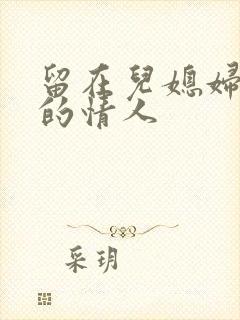 留在兒媳婦
的情人
采玥